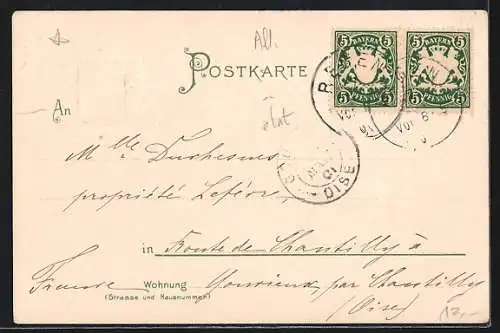 All.
POSTKARTE
5 BAYERN 5
5 PFENNIG 5
5 BAYERN 5
5 PFENNIG 5
état
An
Mlle Duchesnes
propriété Lefèvre,
OISE
in Route de Chantilly à
France Wohnung Gouvieux par Chantilly
(Strasse und Hausnummer)
(Oise)